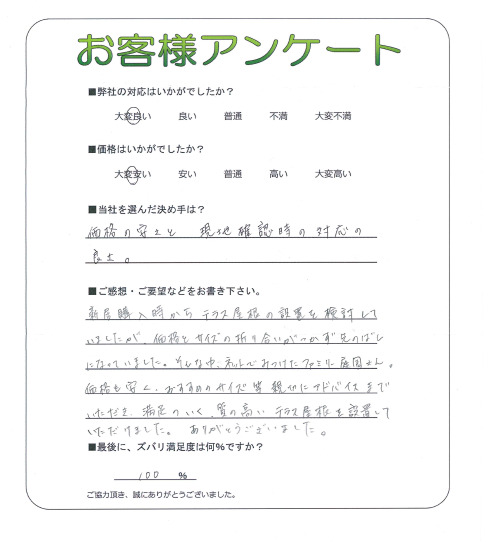 お客様アンケート
■弊社の対応はいかがでしたか？
大変良い 良い 普通 不満 大変不満
■価格はいかがでしたか？
大変安い 安い 普通 高い 大変高い
■当社を選んだ決め手は？
価格の安さと 現地確認時の対応の
良さ。
■ご感想・ご要望などをお書き下さい。
新居購入時から テラス屋根の設置を検討して
いましたが、価格とサイズの折り合いがつかず先のばし
になっていました。そんな中、ネットでみつけたファミリー庭園さん。
価格も安く、おすすめのサイズ等親切にアドバイスまで
いただき、満足のいく、質の高い テラス屋根を設置して
いただけました。 ありがとうございました。
■最後に、ズバリ満足度は何%ですか？
100 %
ご協力頂き、誠にありがとうございました。